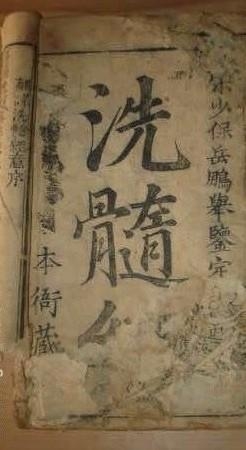 宋少保岳鵬舉鑒定
洗髓
本衙藏
洗髓經序